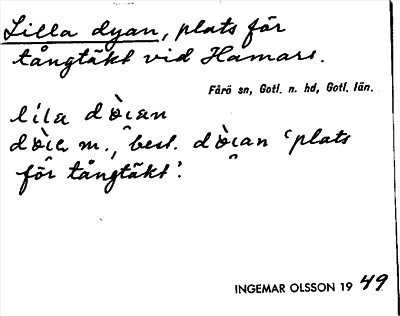 Lilla dyan, plats för
tångtäkt vid Hamars.
Fårö sn, Gotl. n. hd, Gotl. län.
líla dɵ̀ɩan
dɵ̀ɩa m., best. dɵ̀ɩan 'plats
för tångtäkt'.
INGEMAR OLSSON 19 49